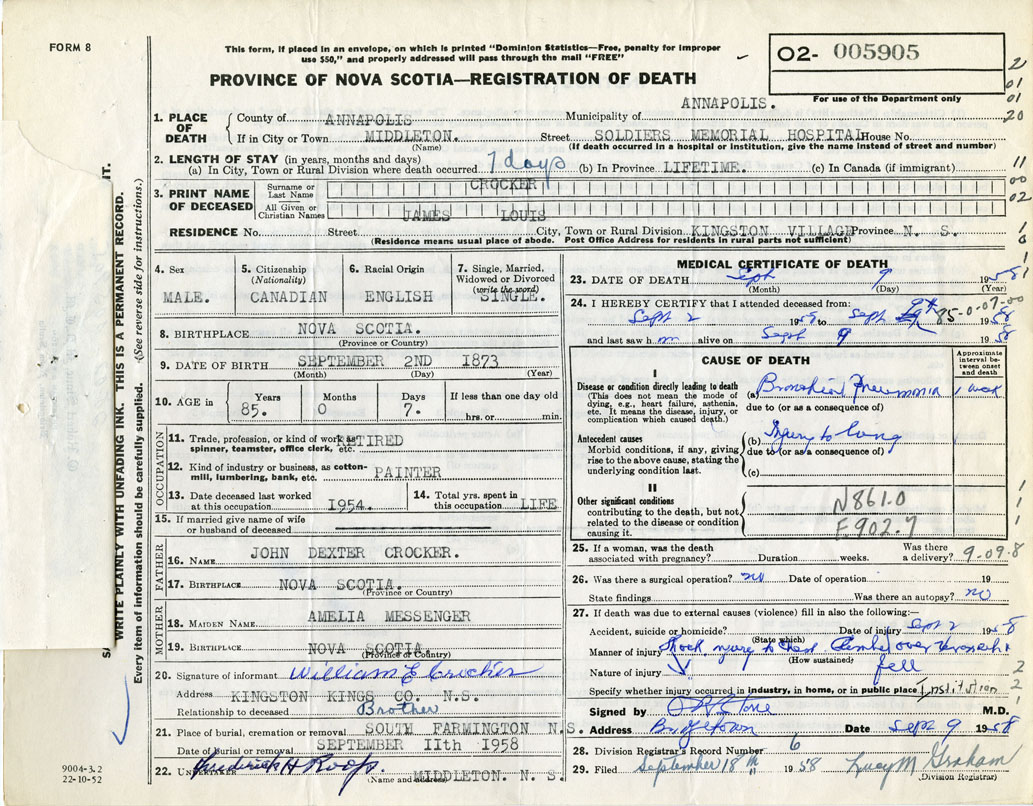 FORM 8
This form, if placed in an envelope, on which is printed "Dominion Statistics—Free, penalty for improper
use $50," and properly addressed will pass through the mail "FREE"
02- 005905
For use of the Department only
PROVINCE OF NOVA SCOTIA—REGISTRATION OF DEATH
1. PLACE OF DEATH
County of ANNAPOLIS Municipality of ANNAPOLIS.
If in City or Town MIDDLETON. Street SOLDIERS MEMORIAL HOSPITAL House No.
(Name) (If death occurred in a hospital or institution, give the name instead of street and number)
2. LENGTH OF STAY (in years, months and days)
(a) In City, Town or Rural Division where death occurred 7 days (b) In Province LIFETIME. (c) In Canada (if immigrant)
3. PRINT NAME OF DECEASED
Surname or Last Name CROCKER
All Given or Christian Names JAMES LOUIS
RESIDENCE No. Street City, Town or Rural Division KINGSTON VILLAGE Province N. S.
(Residence means usual place of abode. Post Office Address for residents in rural parts not sufficient)
4. Sex MALE.
5. Citizenship (Nationality) CANADIAN
6. Racial Origin ENGLISH
7. Single, Married, Widowed or Divorced (write the word) SINGLE.
8. BIRTHPLACE NOVA SCOTIA.
(Province or Country)
9. DATE OF BIRTH SEPTEMBER 2ND 1873
(Month) (Day) (Year)
10. AGE in Years 85. Months 0 Days 7. If less than one day old hrs. or min.
OCCUPATION
11. Trade, profession, or kind of work as spinner, teamster, office clerk, etc. RETIRED
12. Kind of industry or business, as cotton-mill, lumbering, bank, etc. PAINTER
13. Date deceased last worked at this occupation 1954.
14. Total yrs. spent in this occupation LIFE
15. If married give name of wife or husband of deceased
FATHER
16. NAME JOHN DEXTER CROCKER.
17. BIRTHPLACE NOVA SCOTIA.
(Province or Country)
MOTHER
18. MAIDEN NAME AMELIA MESSENGER
19. BIRTHPLACE NOVA SCOTIA.
(Province or Country)
20. Signature of informant William E Crocker
Address KINGSTON KINGS CO. N.S.
Relationship to deceased Brother
21. Place of burial, cremation or removal SOUTH FARMINGTON N.S.
Date of burial or removal SEPTEMBER 11th 1958
22. Frederick H Roop. MIDDLETON. N. S.
(Name and address)
MEDICAL CERTIFICATE OF DEATH
23. DATE OF DEATH Sept 9 1958
(Month) (Day) (Year)
24. I HEREBY CERTIFY that I attended deceased from:
Sept 2 1958 to Sept 9th 1958
85-0-07-00
and last saw him alive on Sept 9 1958
CAUSE OF DEATH
Approximate interval between onset and death
I
Disease or condition directly leading to death
(This does not mean the mode of dying, e.g., heart failure, asthenia, etc. It means the disease, injury, or complication which caused death.)
(a) Bronchial Pneumonia 1 week
due to (or as a consequence of)
Antecedent causes
Morbid conditions, if any, giving rise to the above cause, stating the underlying condition last.
(b) Injury to lung
due to (or as a consequence of)
(c)
II
Other significant conditions
contributing to the death, but not related to the disease or condition causing it.
N861.0
E902.7
25. If a woman, was the death associated with pregnancy? Duration weeks. Was there a delivery? 9-09-8
26. Was there a surgical operation? no Date of operation 19
State findings Was there an autopsy? no
27. If death was due to external causes (violence) fill in also the following:—
Accident, suicide or homicide? Date of injury Sept 2 1958
(State which)
Manner of injury Shock, injury to chest Climbed over verandah &
(How sustained)
Nature of injury fell
Specify whether injury occurred in industry, in home, or in public place Institution
Signed by M.D.
Address Bridgetown Date Sept 9 1958
28. Division Registrar's Record Number 6
29. Filed September 18th 1958 Lucy M Graham
(Division Registrar)
WRITE PLAINLY WITH UNFADING INK. THIS IS A PERMANENT RECORD.
Every item of information should be carefully supplied. (See reverse side for instructions.)
9004-3.2
22-10-52
2
01
01
20
11
00
02